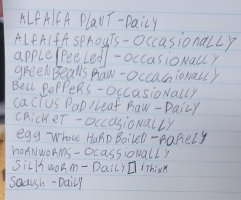 ALFALFA PLANT - DAILY
ALFALFA SPROUTS - OCCASIONALLY
APPLE [Peeled] - OCCASIONALLY
green Beans RAW - OCCASIONALLY
Bell Peppers - OCCASIONALLY
CACTUS PAD/Leaf RAW - DAILY
CRICKET - OCCASIONALLY
egg - WHOLE HARD BOILED - RARELY
HORNWORMS - OCASSIONALLY
SILKWORM - DAILY I think
SQUASH - DAILY